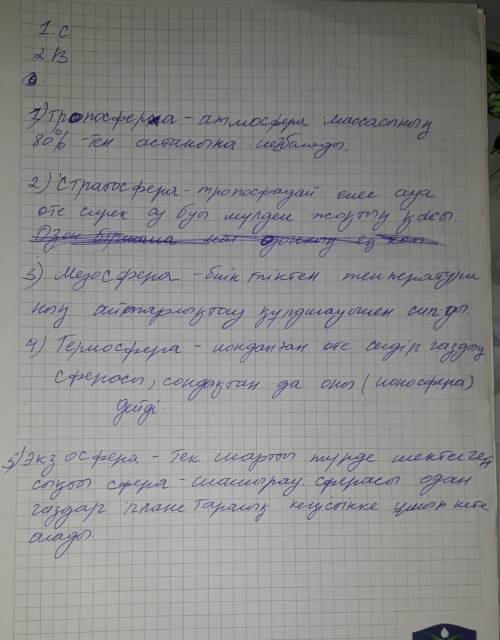 1. С
2. В
1) Тропосферха – атмосфера массасының
80% -тен астамына ие болады.
2) Стратосфера – тропосфадай емес ауа
өте сирек су буы мүлдем жоқтың қасы.
Озон біршама мөл озонның ең көп
3) Мезосфера – биіктіктен температура
ның айтарлықтай құлдилауымен сип-ды.
4) Термосфера – иондалған өте сидір газдың
сферасы, сондықтан да оны (ионосфера)
дейді.
5) Экзосфера – тек шартты түрде шектелген
сыңты сфера – шашырау сферасы одан
газдар планетаралық кеңістікке ұшып кете
алады.